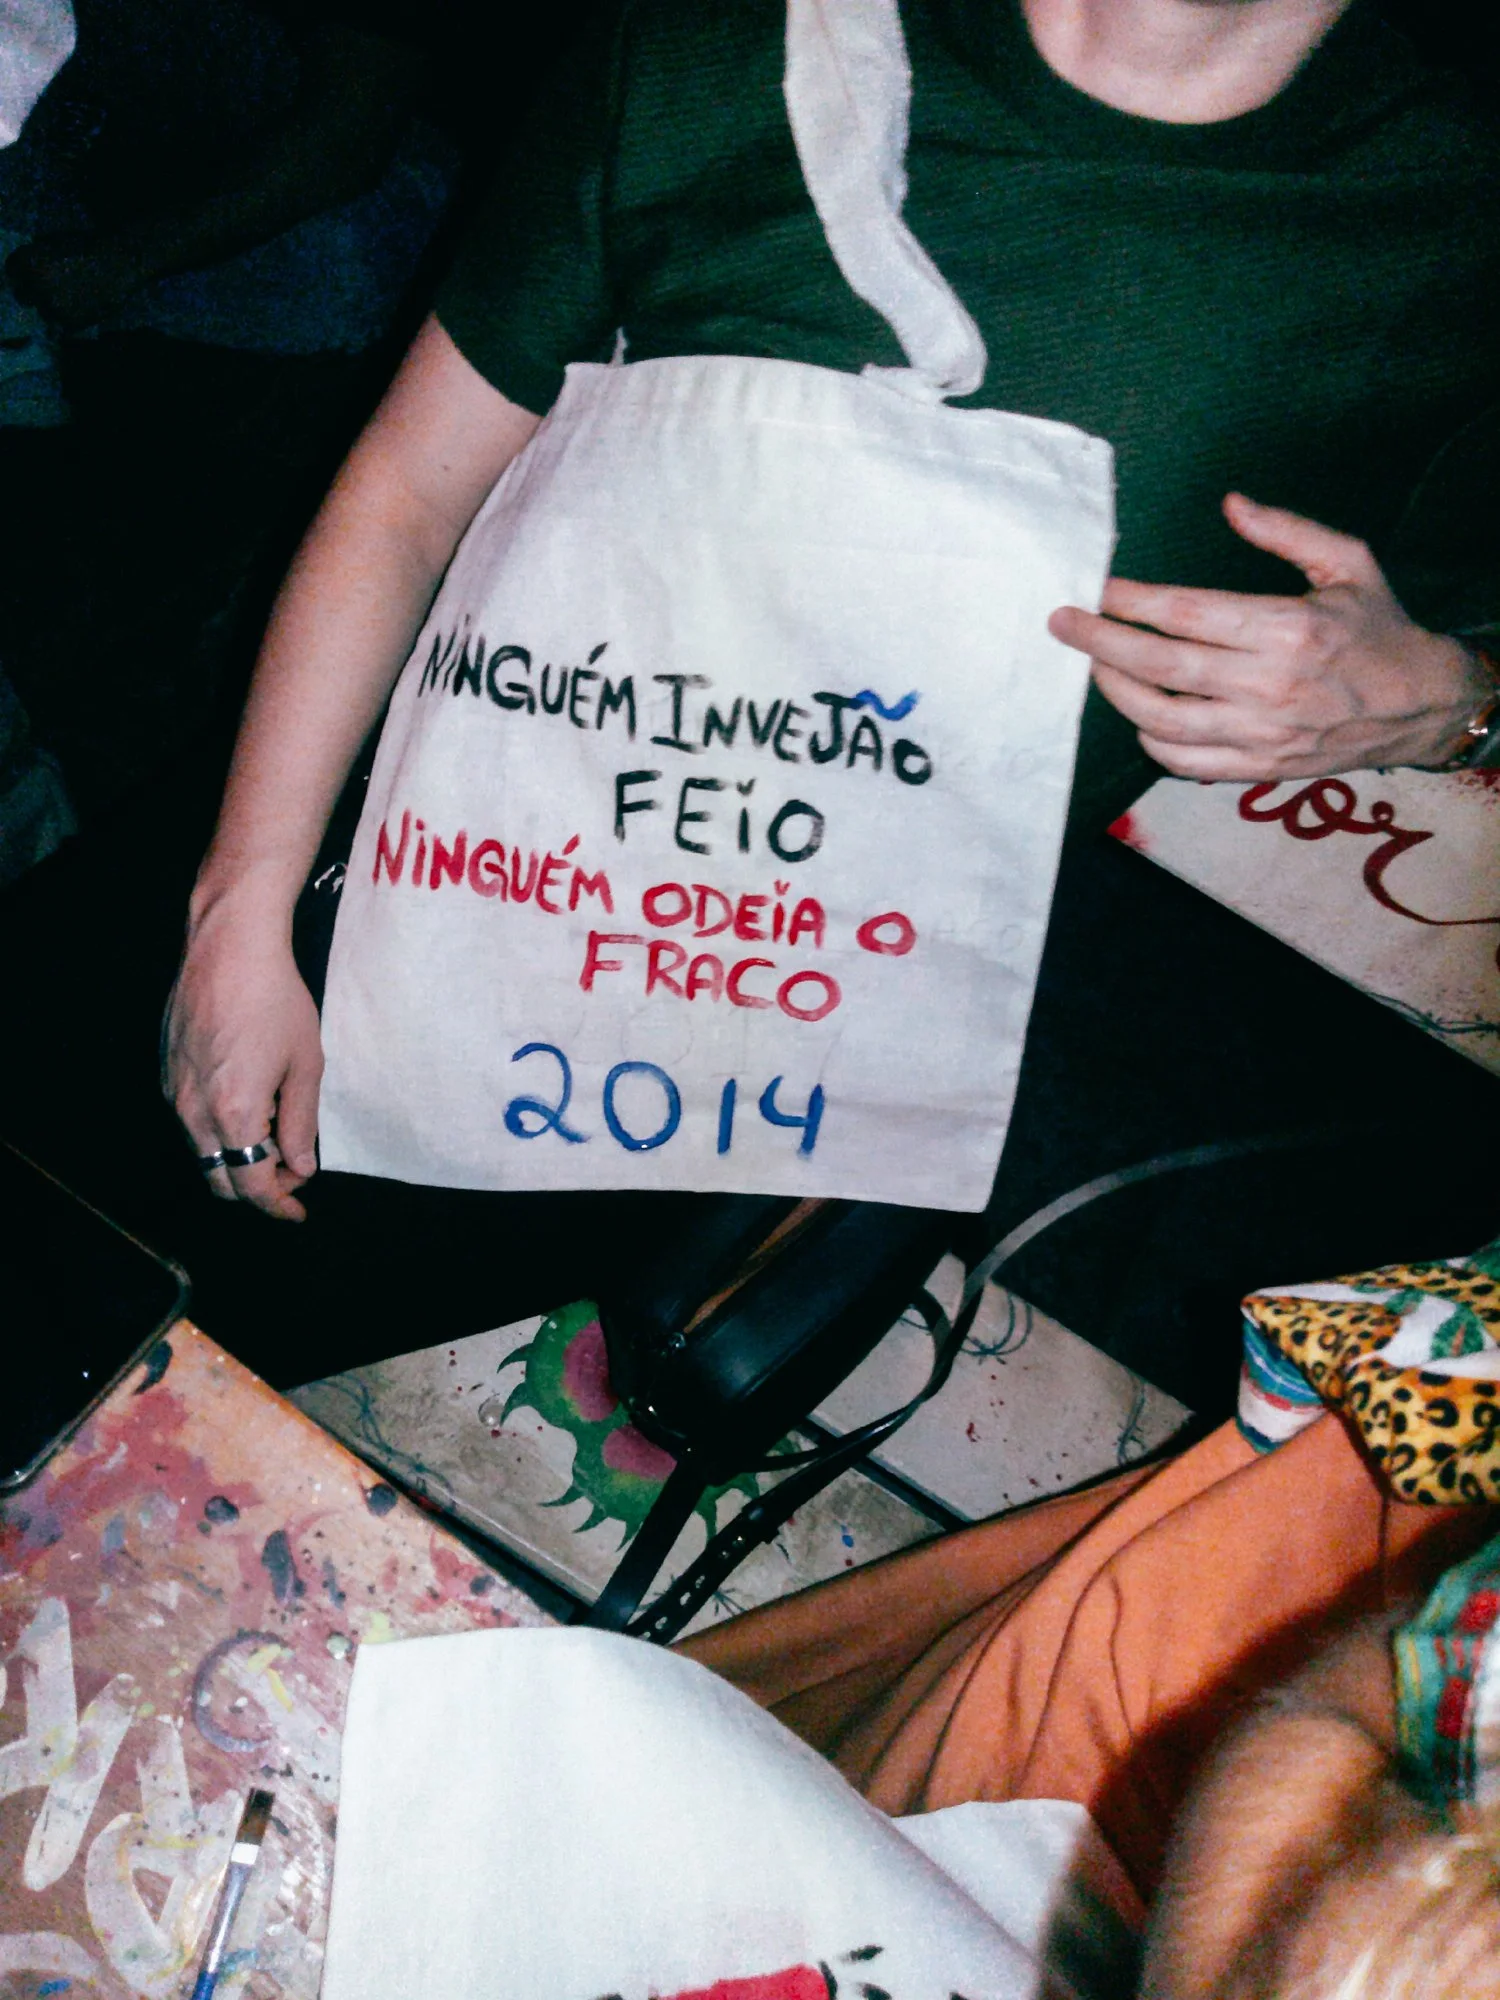 NINGUÉM INVEJÃO
FEIO
NINGUÉM ODEIA O
FRACO
2014